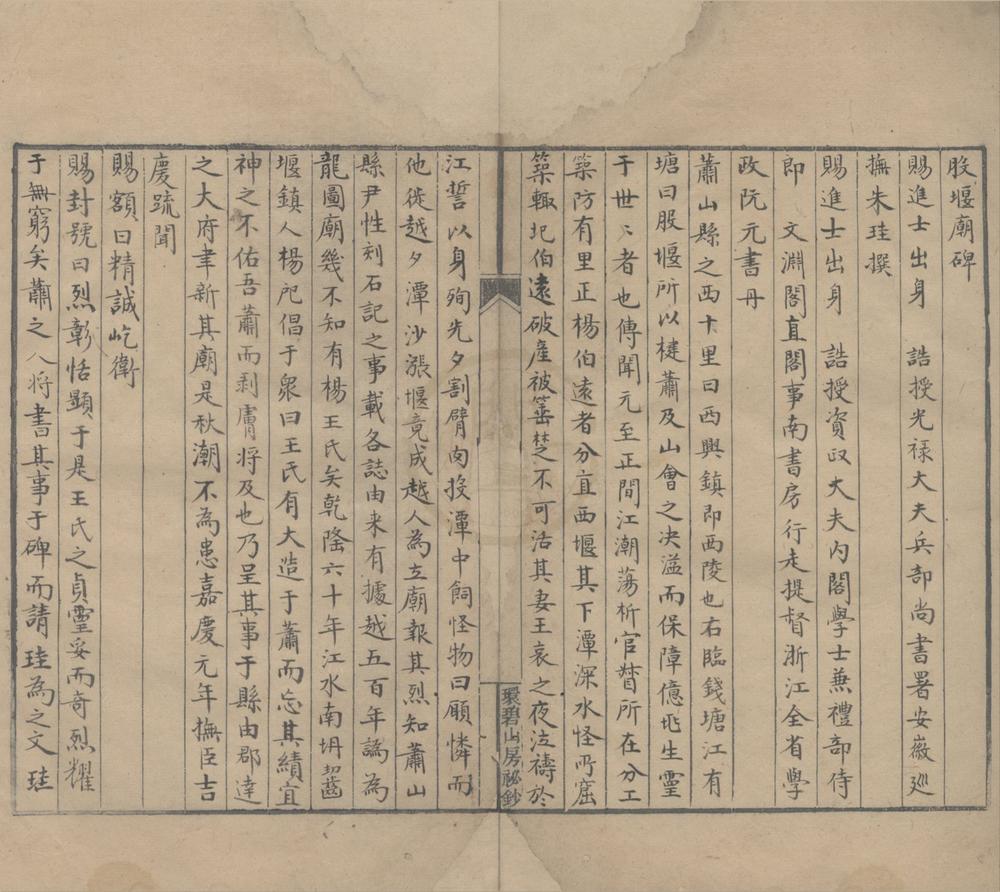 股堰廟碑
賜進士出身　誥授光禄大夫兵部尚書署安徽巡
撫朱珪撰
賜進士出身　誥授資政大夫内閣學士兼禮部侍
郎　文淵閣直閣事南書房行走提督浙江全省學
政阮元書丹
蕭山縣之西十里曰西興鎮即西陵也右臨錢塘江有
塘曰股堰所以楗蕭及山會之决溢而保障億兆生靈
于世世者也傳聞元至正間江潮蕩析官督所在分工
築防有里正楊伯遠者分直西堰其下潭深水怪所窟
築輒圮伯遠破産被箠楚不可活其妻王哀之夜泣禱於
江誓以身殉先夕割臂肉投潭中飼怪物曰願憐而
他徙越夕潭沙漲堰竟成越人為立廟報其烈知蕭山
縣尹性刻石記之事載各誌由来有據越五百年譌為
龍圖廟幾不知有楊王氏矣乾隆六十年江水南坍齧
堰鎮人楊圮倡于衆曰王氏有大造于蕭而忘其績宜
神之不佑吾蕭而剥膚将及也乃呈其事于縣由郡達
之大府聿新其廟是秋潮不為患嘉慶元年撫臣吉
慶疏聞
賜額曰精誠屹衛
賜封號曰烈彰恬顯于是王氏之貞靈妥而奇烈耀
于無窮矣蕭之人将書其事于碑而請珪為之文珪
環碧山房秘鈔